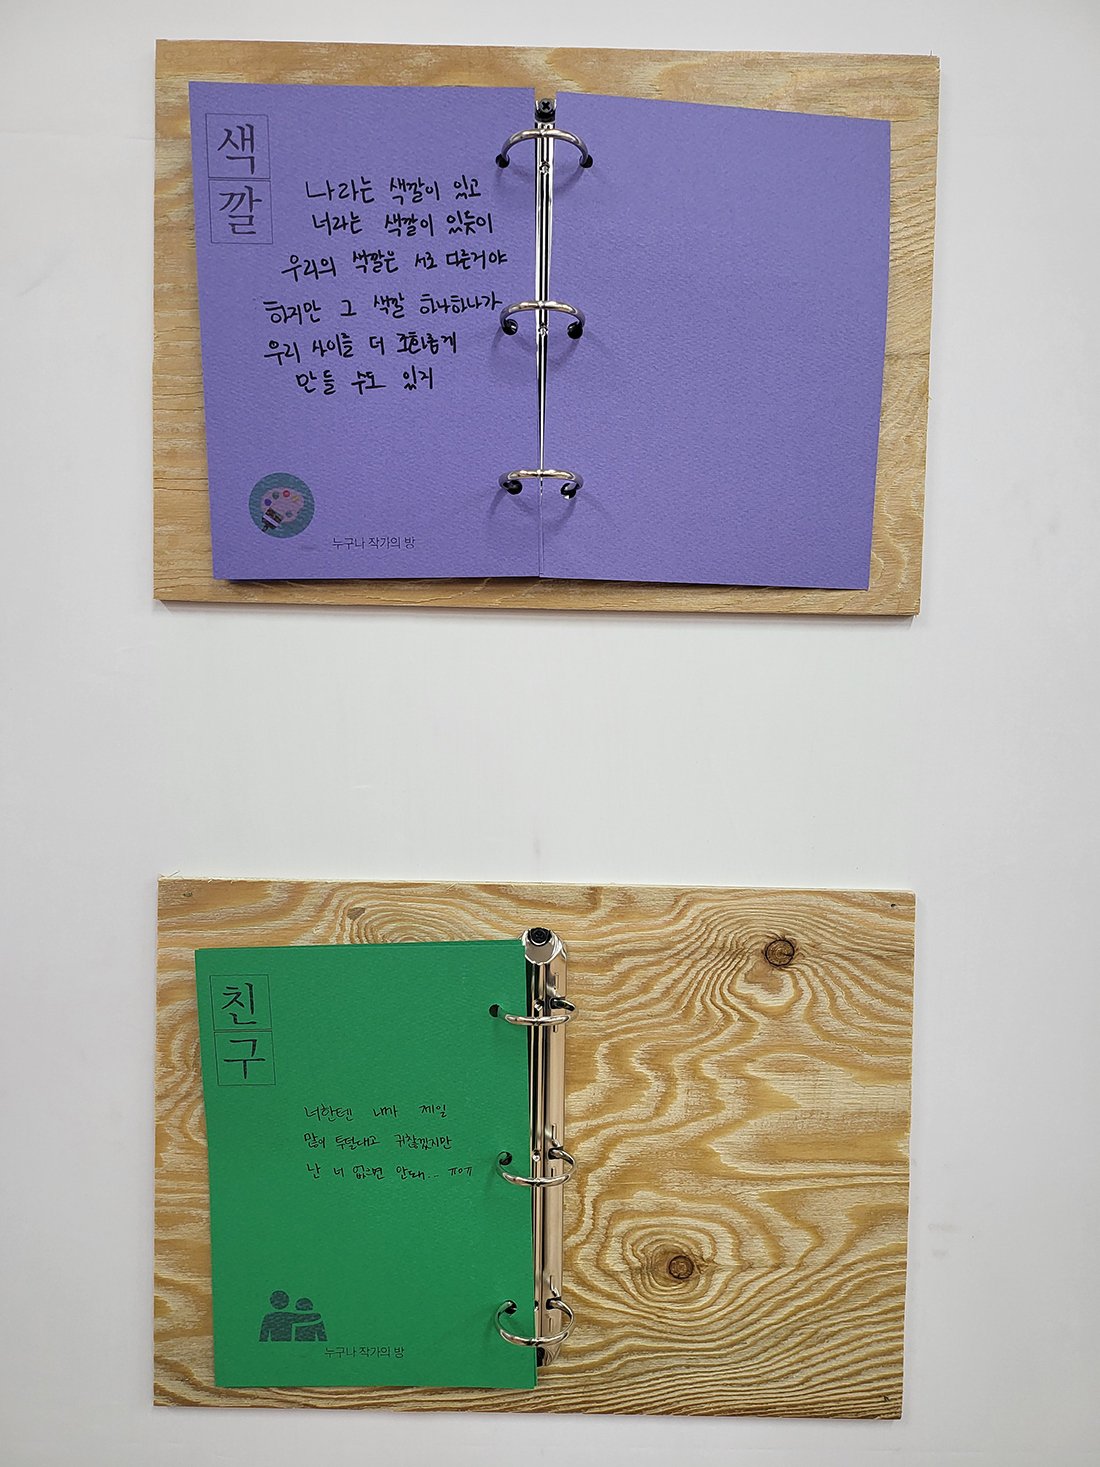 색깔
나라는 색깔이 있고
너라는 색깔이 있듯이
우리의 색깔은 서로 다른거야
하지만 그 색깔 하나하나가
우리 사이를 더 조화롭게
만들 수도 있지
누구나 작가의 방
친구
너한텐 내가 제일
많이 투덜대고 귀찮겠지만
난 너 없으면 안돼... ㅠㅇㅠ
누구나 작가의 방